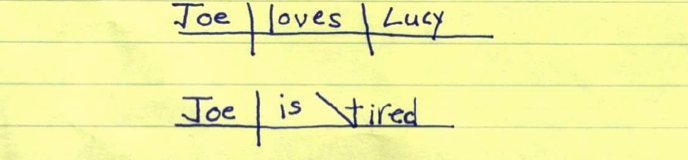 Joe loves Lucy
Joe is tired